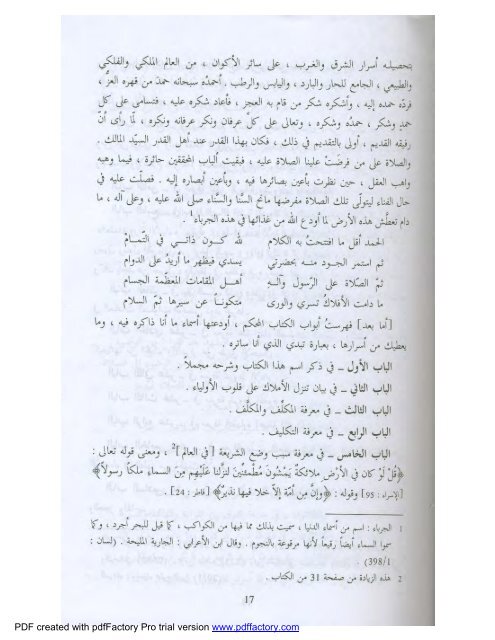 بتحصيله أسرار الشرق والغرب ، على سائر الأكوان ، من العالم الملكي والفلكي
والطبيعي ، الجامع للحار والبارد ، واليابس والرطب . أحمدُه سبحانه حمدَ من قهره العزّ ،
فردّه حمده إليه ، وأشكره شكر من قام به العجز ، فأعاد شكره عليه ، فتسامى على كل
حمدٍ وشكر ، حمدُه وشكره ، وتعالى على كلّ عرفان ونكر عرفانه ونكره ، لمّا رأى أنّ
رفيقه القديم ، أولى بالتقديم في ذلك ، فكان بهذا القدر عند أهل القدر السيّد المالك .
والصلاة على من فرضَتْ علينا الصلاة عليه ، فبقيت ألباب المحققين حائرة ، فيما وهبه
واهب العقل ، حين نظرت بأعين بصائرها فيه ، وبأعين أبصاره إليه . فصلّت عليه في
حال الفناء ليتولّى تلك الصلاة مفرضها مانح السنَّا والسنَّاء صلى الله عليه ، وعلى آله ، ما
دام تعطّش هذه الأرض لما أودع الله من غذائها في هذه الجرباء1 .
الحمد أقل ما افتتحتُ به الكلام لله كـــون ذاتــي في التّمــامْ
ثم استمر الجــود منــه بحضرتي يسدي فيظهر ما أريدُ على الدوام
ثمّ الصّلاة على الرّسول وآلــهِ أهــل المقامات المعظّمة الجسام
ما دامت الأفلاكُ تسري والورى متكونــاً عن سيرها ثمّ السلام
[أما بعد] فهرستُ أبواب الكتاب المحكم ، أودعتها أسماء ما أنا ذاكره فيه ، وما
يعطيك من أسرارها ، بعبارة تبدي الذي أنا ساتره .
الباب الأول ــ في ذكر اسم هذا الكتاب وشرحه مجملاً .
الباب الثاني ــ في بيان تنزل الأملاك على قلوب الأولياء .
الباب الثالث ــ في معرفة المكلِّف والمكلَّف .
الباب الرابع ــ في معرفة التكليف .
الباب الخامس ــ في معرفة سبب وضع الشريعة [في العالم]2 ، ومعنى قوله تعالى :
﴿قُلْ لَوْ كان في الأرْضِ ملائكةٌ يَمْشُونَ مُطْمئِنّينَ لنَزّلْنا عَلَيْهِم مِنَ السماءِ ملَكاً رسولاً﴾
[الإسراء : 95] وقوله : ﴿وإنْ مِن أمّة إلاّ خلا فيها نذيرٌ﴾ [فاطر : 24] .
1 الجرباء : اسم من أسماء الدنيا ، سميت بذلك مما فيها من الكواكب ، كما قيل للبحر أجرد ، وكما
سموا السماء أيضاً رقيعاً لأنها مرقوعة بالنجوم . وقال ابن الأعرابي : الجارية المليحة . (لسان :
398/1) .
2 هذه الزيادة من صفحة 31 من الكتاب .
17
PDF created with pdfFactory Pro trial version www.pdffactory.com